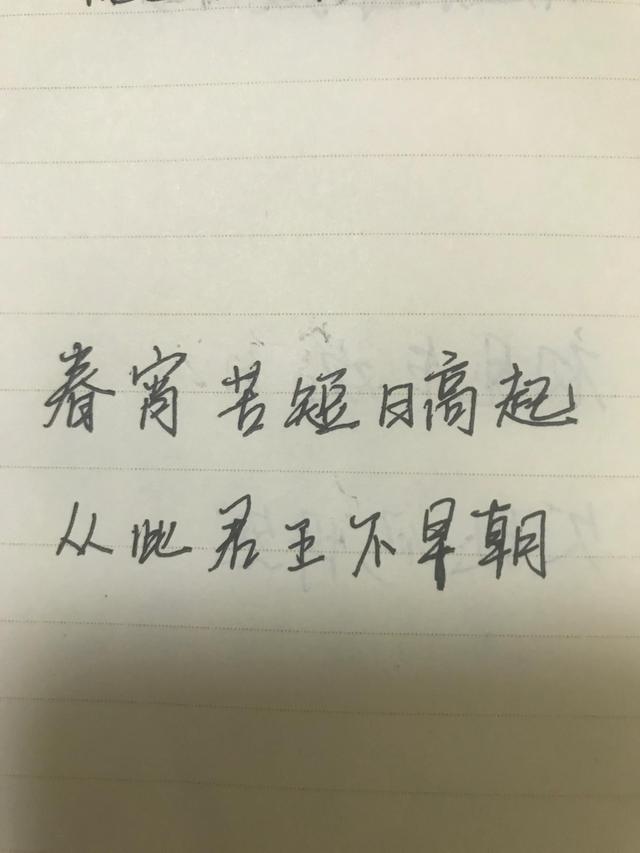 春宵苦短日高起
从此君王不早朝